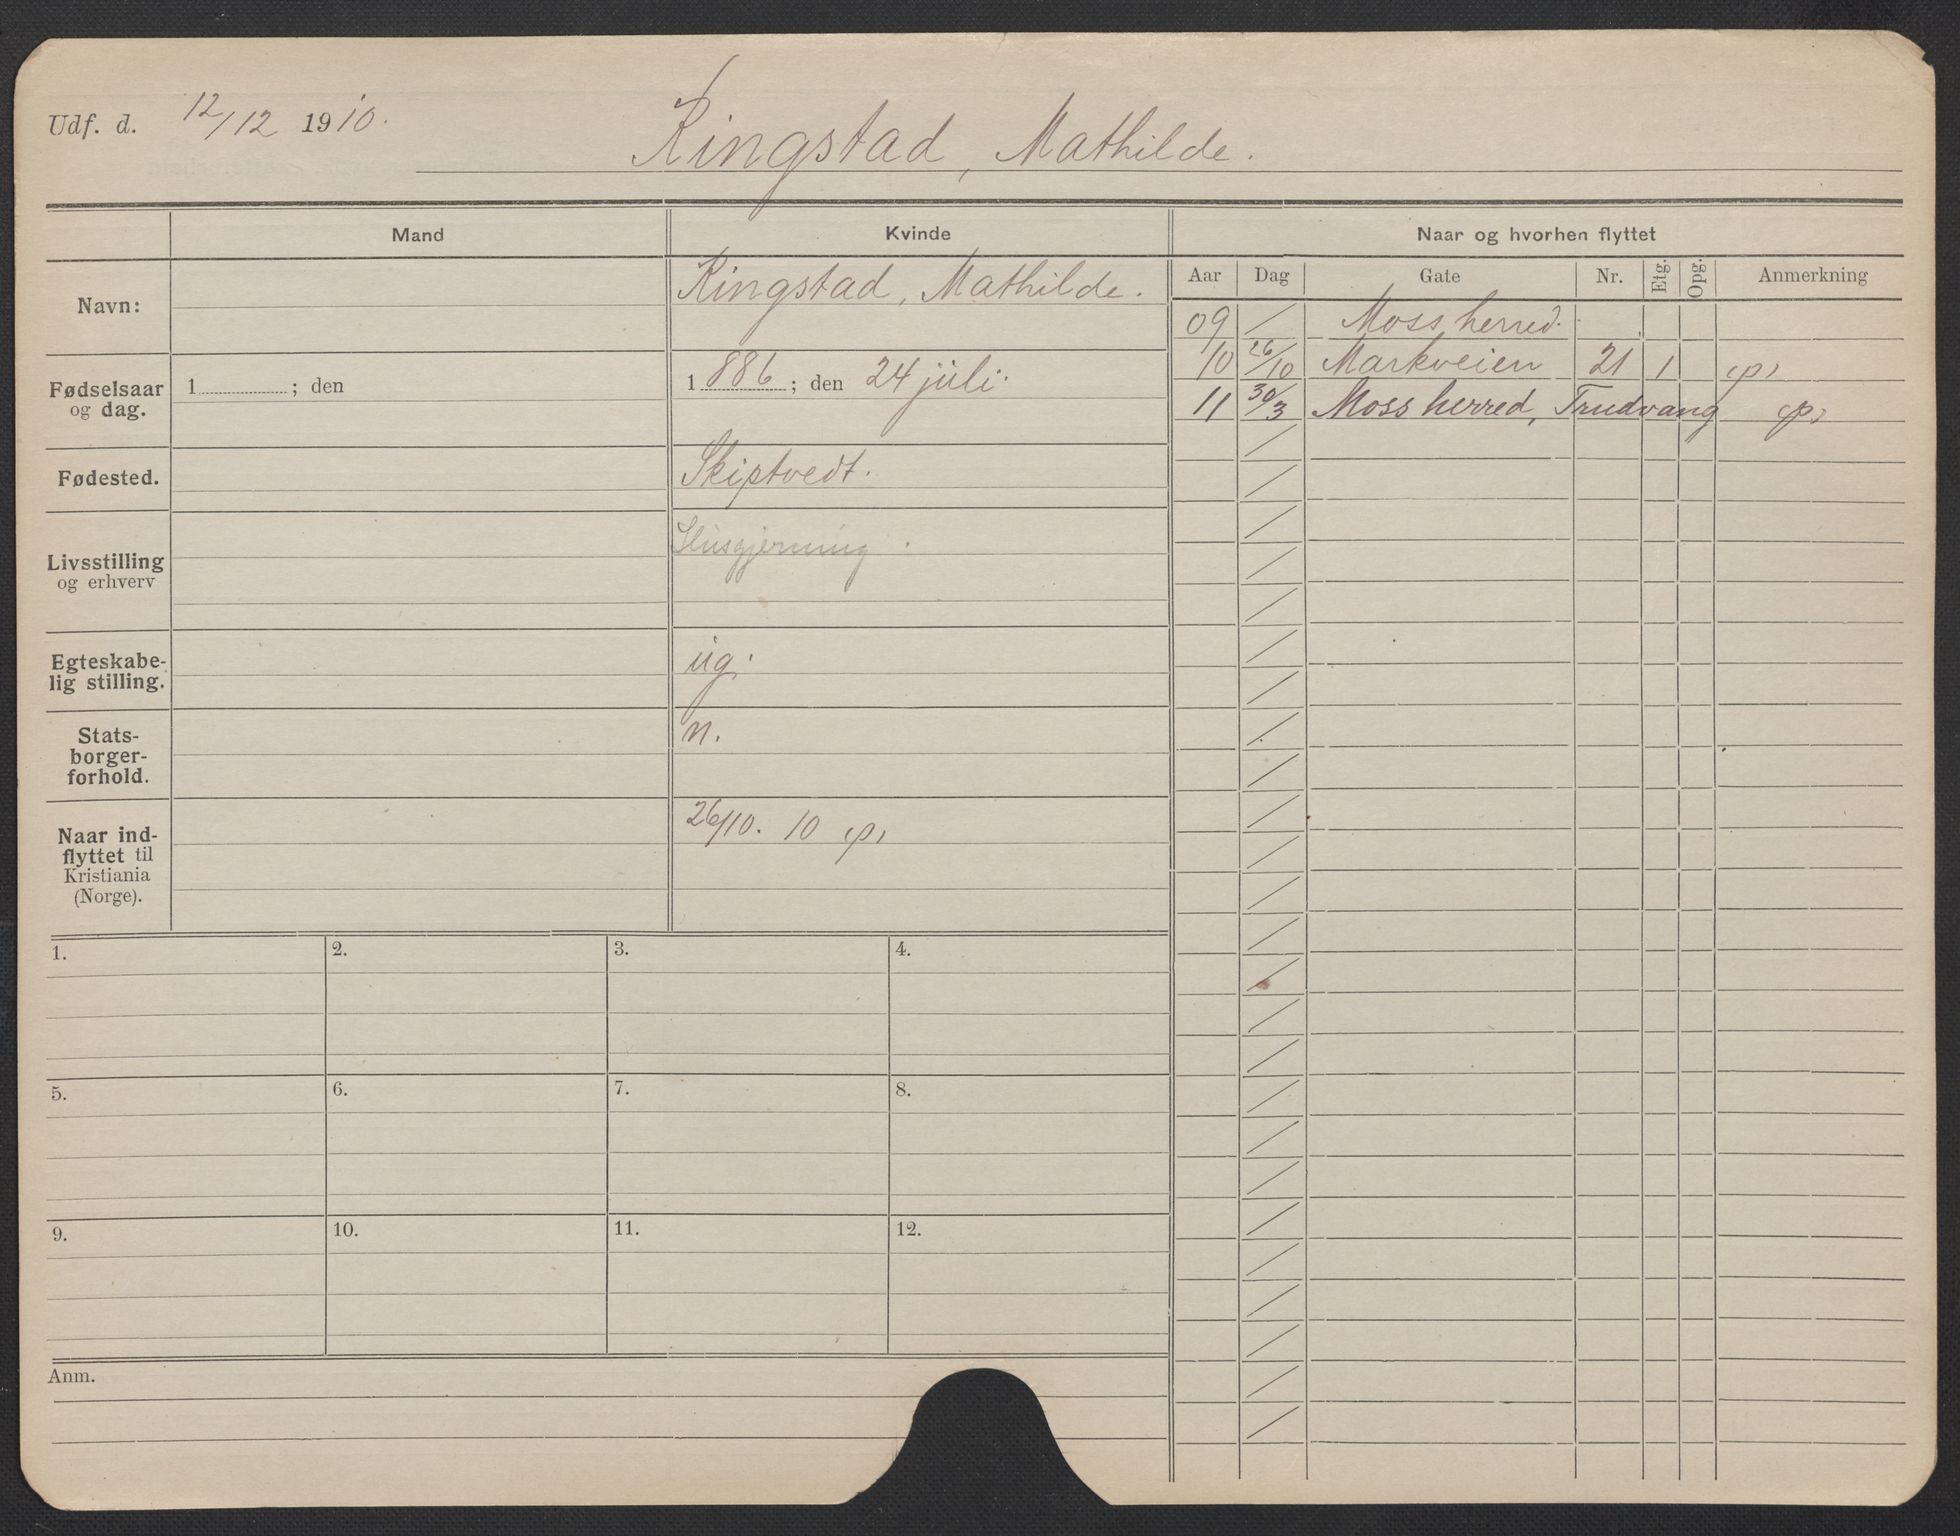 Udf. d. 12/12 1910.
Ringstad, Mathilde.
Mand Kvinde Naar og hvorhen flyttet
Aar Dag Gate Nr. Etg. Opg. Anmerkning
Navn: Ringstad, Mathilde.
Fødselsaar og dag. 1 ; den 1886 ; den 24 juli.
Fødested. Skiptvedt.
Livsstilling og erhverv Husgjerning.
Egteskabe-
lig stilling. ug.
Stats-
borger-
forhold. n.
Naar ind-
flyttet til
Kristiania
(Norge). 26/10. 10 (p)
09 / Moss herred.
10 26/10 Markveien 21 1 (p)
11 30/3 Moss herred, Trudvang (p)
1. 2. 3. 4.
5. 6. 7. 8.
9. 10. 11. 12.
Anm.